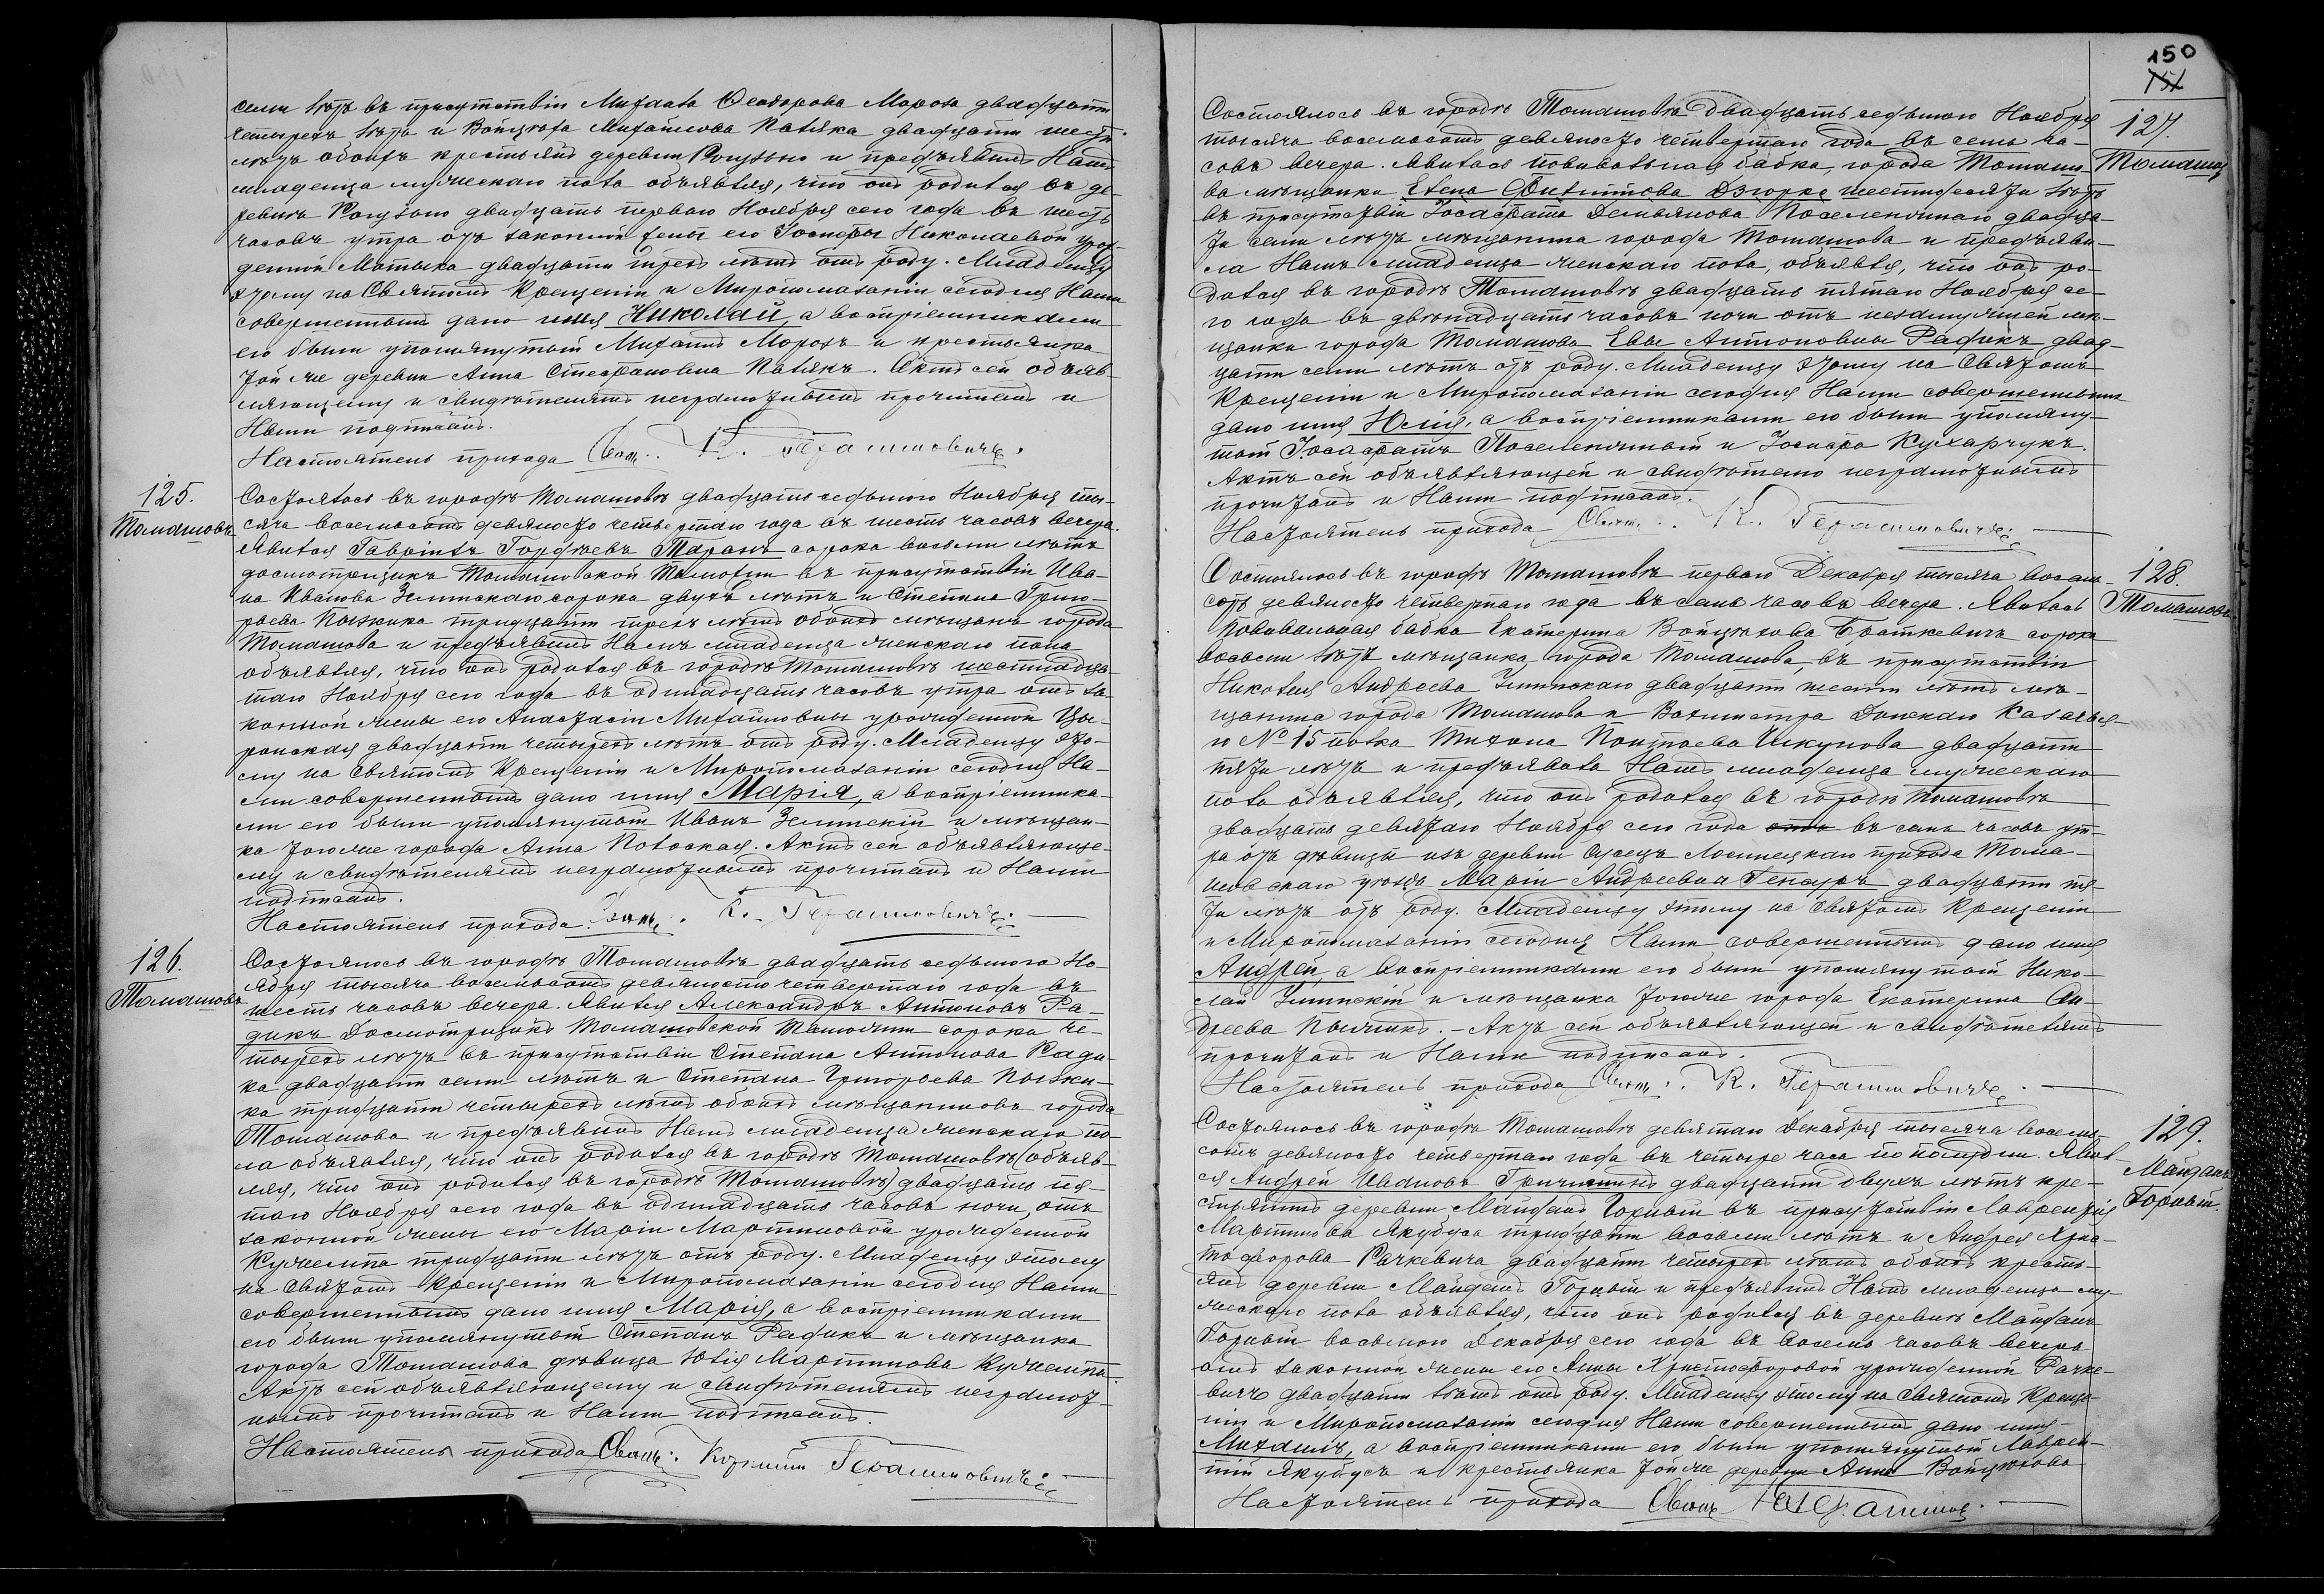 семи лѣтъ въ присутствіи Михаила Ѳеодорова Мороза двадцати
четырехъ лѣтъ и Войцѣха Михайлова Патяка двадцати шести
лѣтъ обоихъ крестьянъ деревни Рогузно и предъявилъ Намъ
младенца мужескаго пола объявляя, что онъ родился въ де-
ревнѣ Рогузно двадцать перваго Ноября сего года въ шесть
часовъ утра отъ законной жены его Николаевой урож-
денной Матыка двадцати трехъ лѣтъ отъ роду. Младенцу
этому на Святомъ Крещеніи и Миропомазаніи сегодня Нами
совершенномъ дано имя Николай, а воспріемниками
его были упомянутый Михаилъ Морозъ и крестьянка
той же деревни Анна Стефановна Патякъ. Актъ сей объяв-
ляющему и свидѣтелямъ неграмотнымъ прочитанъ и
Нами подписанъ.
Настоятель прихода Свящ. К. Герасимовичъ.
125.
Томашовъ
Состоялось въ городѣ Томашовѣ двадцать седьмого Ноября ты-
сяча восемьсотъ девяносто четвертаго года въ шесть часовъ вечера.
Явился Гавріилъ Гордѣевъ Таранъ сорока восьми лѣтъ
досмотрщикъ Томашовской Таможни въ присутствіи Ива-
на Иванова Зелинскаго сорока двухъ лѣтъ и Степана Григо-
рьева тридцати трехъ лѣтъ обоихъ мѣщанъ города
Томашова и предъявилъ Намъ младенца женскаго пола
объявляя, что онъ родился въ городѣ Томашовѣ шестнадца-
таго Ноября сего года въ одинадцать часовъ утра отъ за-
конной жены его Анастасіи Михайловны урожденной Цы-
ронская двадцати четырехъ лѣтъ отъ роду. Младенцу это-
му на Святомъ Крещеніи и Миропомазаніи сегодня На-
ми совершенномъ дано имя Марія, а воспріемника-
ми его были упомянутый Иванъ Зелинскій и мѣщан-
ка тогоже города Анна. Актъ сей объявляюще-
му и свидѣтелямъ неграмотнымъ прочитанъ и Нами
подписанъ.
Настоятель прихода Свящ. К. Герасимовичъ.
126.
Томашовъ
Состоялось въ городѣ Томашовѣ двадцать седьмого Но-
ября тысяча восемьсотъ девяносто четвертаго года въ
шесть часовъ вечера. Явился Александръ Антоновъ Ра-
дикъ Досмотрщикъ Томашовской Таможни сорока че-
тырехъ лѣтъ въ присутствіи Степана Антонова Ради-
ка двадцати семи лѣтъ и Степана Григорьева
ка тридцати четырехъ лѣтъ обоихъ мѣщаниновъ города
Томашова и предъявилъ Намъ младенца женскаго по-
ла объявляя, что онъ родился въ городѣ Томашовѣ (объяв-
ляя, что онъ родился въ городѣ Томашовѣ) двадцать пя-
таго Ноября сего года въ одинадцать часовъ ночи, отъ
законной жены его Маріи Мартиновой урожденной
Кужелина тридцати лѣтъ отъ роду. Младенцу этому
на Святомъ Крещеніи и Миропомазаніи сегодня Нами
совершенномъ дано имя Марія, а воспріемниками
его были упомянутый Степанъ Радикъ и мѣщанка
города Томашова дѣвица Юлія Мартинова
Актъ сей объявляющему и свидѣтелямъ неграмот-
нымъ прочитанъ и Нами подписанъ.
Настоятель прихода Свящ. Корнилій Герасимовичъ
150
151
127.
Томашов
Состоялось въ городѣ Томашовѣ двадцать седьмого Ноября
тысяча восемьсотъ девяносто четвертаго года въ семь ча-
совъ вечера. Явилась повивальная бабка, города Томашо-
ва мѣщанка Елена Филиппова шестидесяти лѣтъ
въ присутствіи Іосафата Демьянова Поселеннаго двадца-
ти семи лѣтъ мѣщанина города Томашова и предъяви-
ла Намъ младенца женскаго пола, объявляя, что онъ ро-
дился въ городѣ Томашовѣ двадцать пятаго Ноября се-
го года въ двѣнадцать часовъ ночи отъ незамужней мѣ-
щанки города Томашова Евы Антоновны Радикъ двад-
цати семи лѣтъ отъ роду. Младенцу этому на Святомъ
Крещеніи и Миропомазаніи сегодня Нами совершенномъ
дано имя Юлія, а воспріемниками его были упомяну-
тый Іосафатъ и Кухарчукъ.
Актъ сей объявляющей и свидѣтелю неграмотнымъ
прочитанъ и Нами подписанъ.
Настоятель прихода Свящ. К. Герасимовичъ
128.
Томашовъ
Состоялось въ городѣ Томашовѣ перваго Декабря тысяча восемь-
сотъ девяносто четвертаго года въ семь часовъ вечера. Явилась
Повивальная бабка Екатерина Войцѣхова Браткевичъ сорока
восьми лѣтъ мѣщанка города Томашова, въ присутствіи
Николая Андреева двадцати шести лѣтъ мѣ-
щанина города Томашова и Вахмистра Донскаго Казачья-
го № 15 полка Тихона двадцати
пяти лѣтъ и предъявила Намъ младенца мужескаго
пола объявляя, что онъ родился въ городѣ Томашовѣ
двадцать девятаго Ноября сего года въ семь часовъ ут-
ра отъ дѣвицы изъ деревни прихода Тома-
шовскаго уѣзда Маріи Андреевна двадцати пя-
ти лѣтъ отъ роду. Младенцу этому на Святомъ Крещеніи
и Миропомазаніи сегодня Нами совершенномъ дано имя
Андрей, а воспріемниками его были упомянутый Нико-
лай и мѣщанка тогоже города Екатерина Ан-
дреева. - Актъ сей объявляющей и свидѣтелямъ
прочитанъ и Нами подписанъ.
Настоятель прихода Свящ. К. Герасимовичъ.
129.
Майданъ
Горный.
Состоялось въ городѣ Томашовѣ девятаго Декабря тысяча восемь-
сотъ девяносто четвертаго года въ четыре часа по полудни. Явил-
ся Андрей Ивановъ двадцати двухъ лѣтъ кре-
стьянинъ деревни Майданъ Горный въ присутствіи Лаврентія
Мартинова Якубуса тридцати восьми лѣтъ и Андрея Хрис-
тофорова Рачкевича двадцати четырехъ лѣтъ обоихъ кресть-
янъ деревни Майданъ Горный и предъявилъ Намъ младенца му-
жескаго пола объявляя, что онъ родился въ деревнѣ Майданъ
Горный восьмого Декабря сего года въ восемь часовъ вечера
отъ законной жены его Анны Христофоровой урожденной Рачке-
вичъ двадцати лѣтъ отъ роду. Младенцу этому на Святомъ Креще-
ніи и Миропомазаніи сегодня Нами совершенномъ дано имя
Михаилъ, а воспріемниками его были упомянутый Лаврен-
тій Якубусъ и крестьянка той же деревни Анна Войцѣхова
Настоятель прихода Свящ.